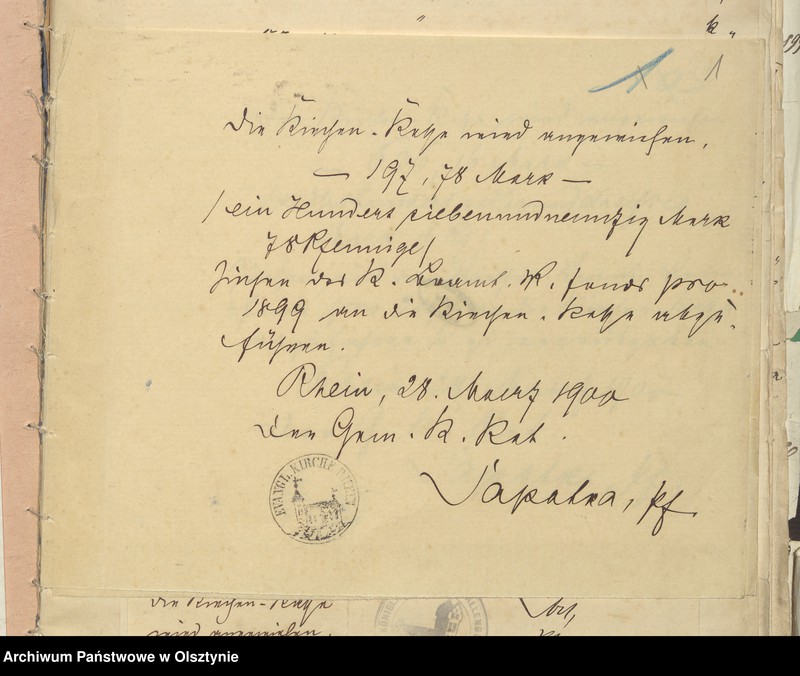 k "
1 1
Die Kirchen-Kasse wird angewiesen,
— 197,78 Mark —
/ ein Hundert siebenundneunzig Mark
78 Pfennige /
Zinsen des K. Beamt. W. fonds pro
1899 an die Kirchen-Kasse abzu-
führen.
Rhein, 28. Maerz 1900
Der Gem. K. Rat.
EVANGL. KIRCHE RHEIN
Sapatka, Pf.
die Kirchen-Kasse
wird angewiesen,
Archiwum Państwowe w Olsztynie